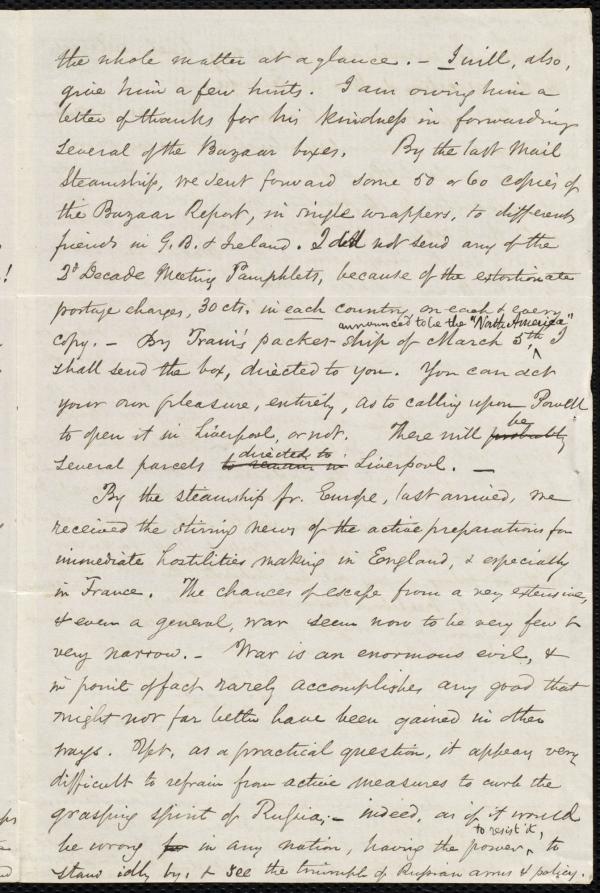 the whole matter at a glance. – I will, also,
give him a few hints. I am owing him a
letter of thanks for his kindness in forwarding
several of the Bazaar boxes. By the last Mail
Steamship, we sent forward some 50 or 60 copies of
the Bazaar Report, in single wrappers, to different
friends in G. B. & Ireland. I did not send any of the
2d Decade Meeting Pamphlets, because of the extortionate
postage charges, 30 cts. in each country on each & every
announced to be the "North America"
copy. – By Train's packet-ship of March 5th, I
shall send the box, directed to you. You can act
your own pleasure, entirely, as to calling upon Powell
be
to open it in Liverpool, or not. There will probably
directed to
several parcels to remain in Liverpool. –
By the steamship fr. Europe, last arrived, we
received the stirring news of the active preparations for
immediate hostilities making in England, & especially
in France. The chances of escape from a very extensive,
& even a general, war seem now to be very few &
very narrow. – War is an enormous evil, &
in point of fact rarely accomplishes any good that
might not far better have been gained in other
ways. Yet, as a practical question, it appears very
difficult to refrain from active measures to curb the
grasping spirit of Russia; – indeed, as if it would
to resist it,
be wrong for in any nation, having the power, to
stand idly by, & see the triumph of Russian arms & policy.